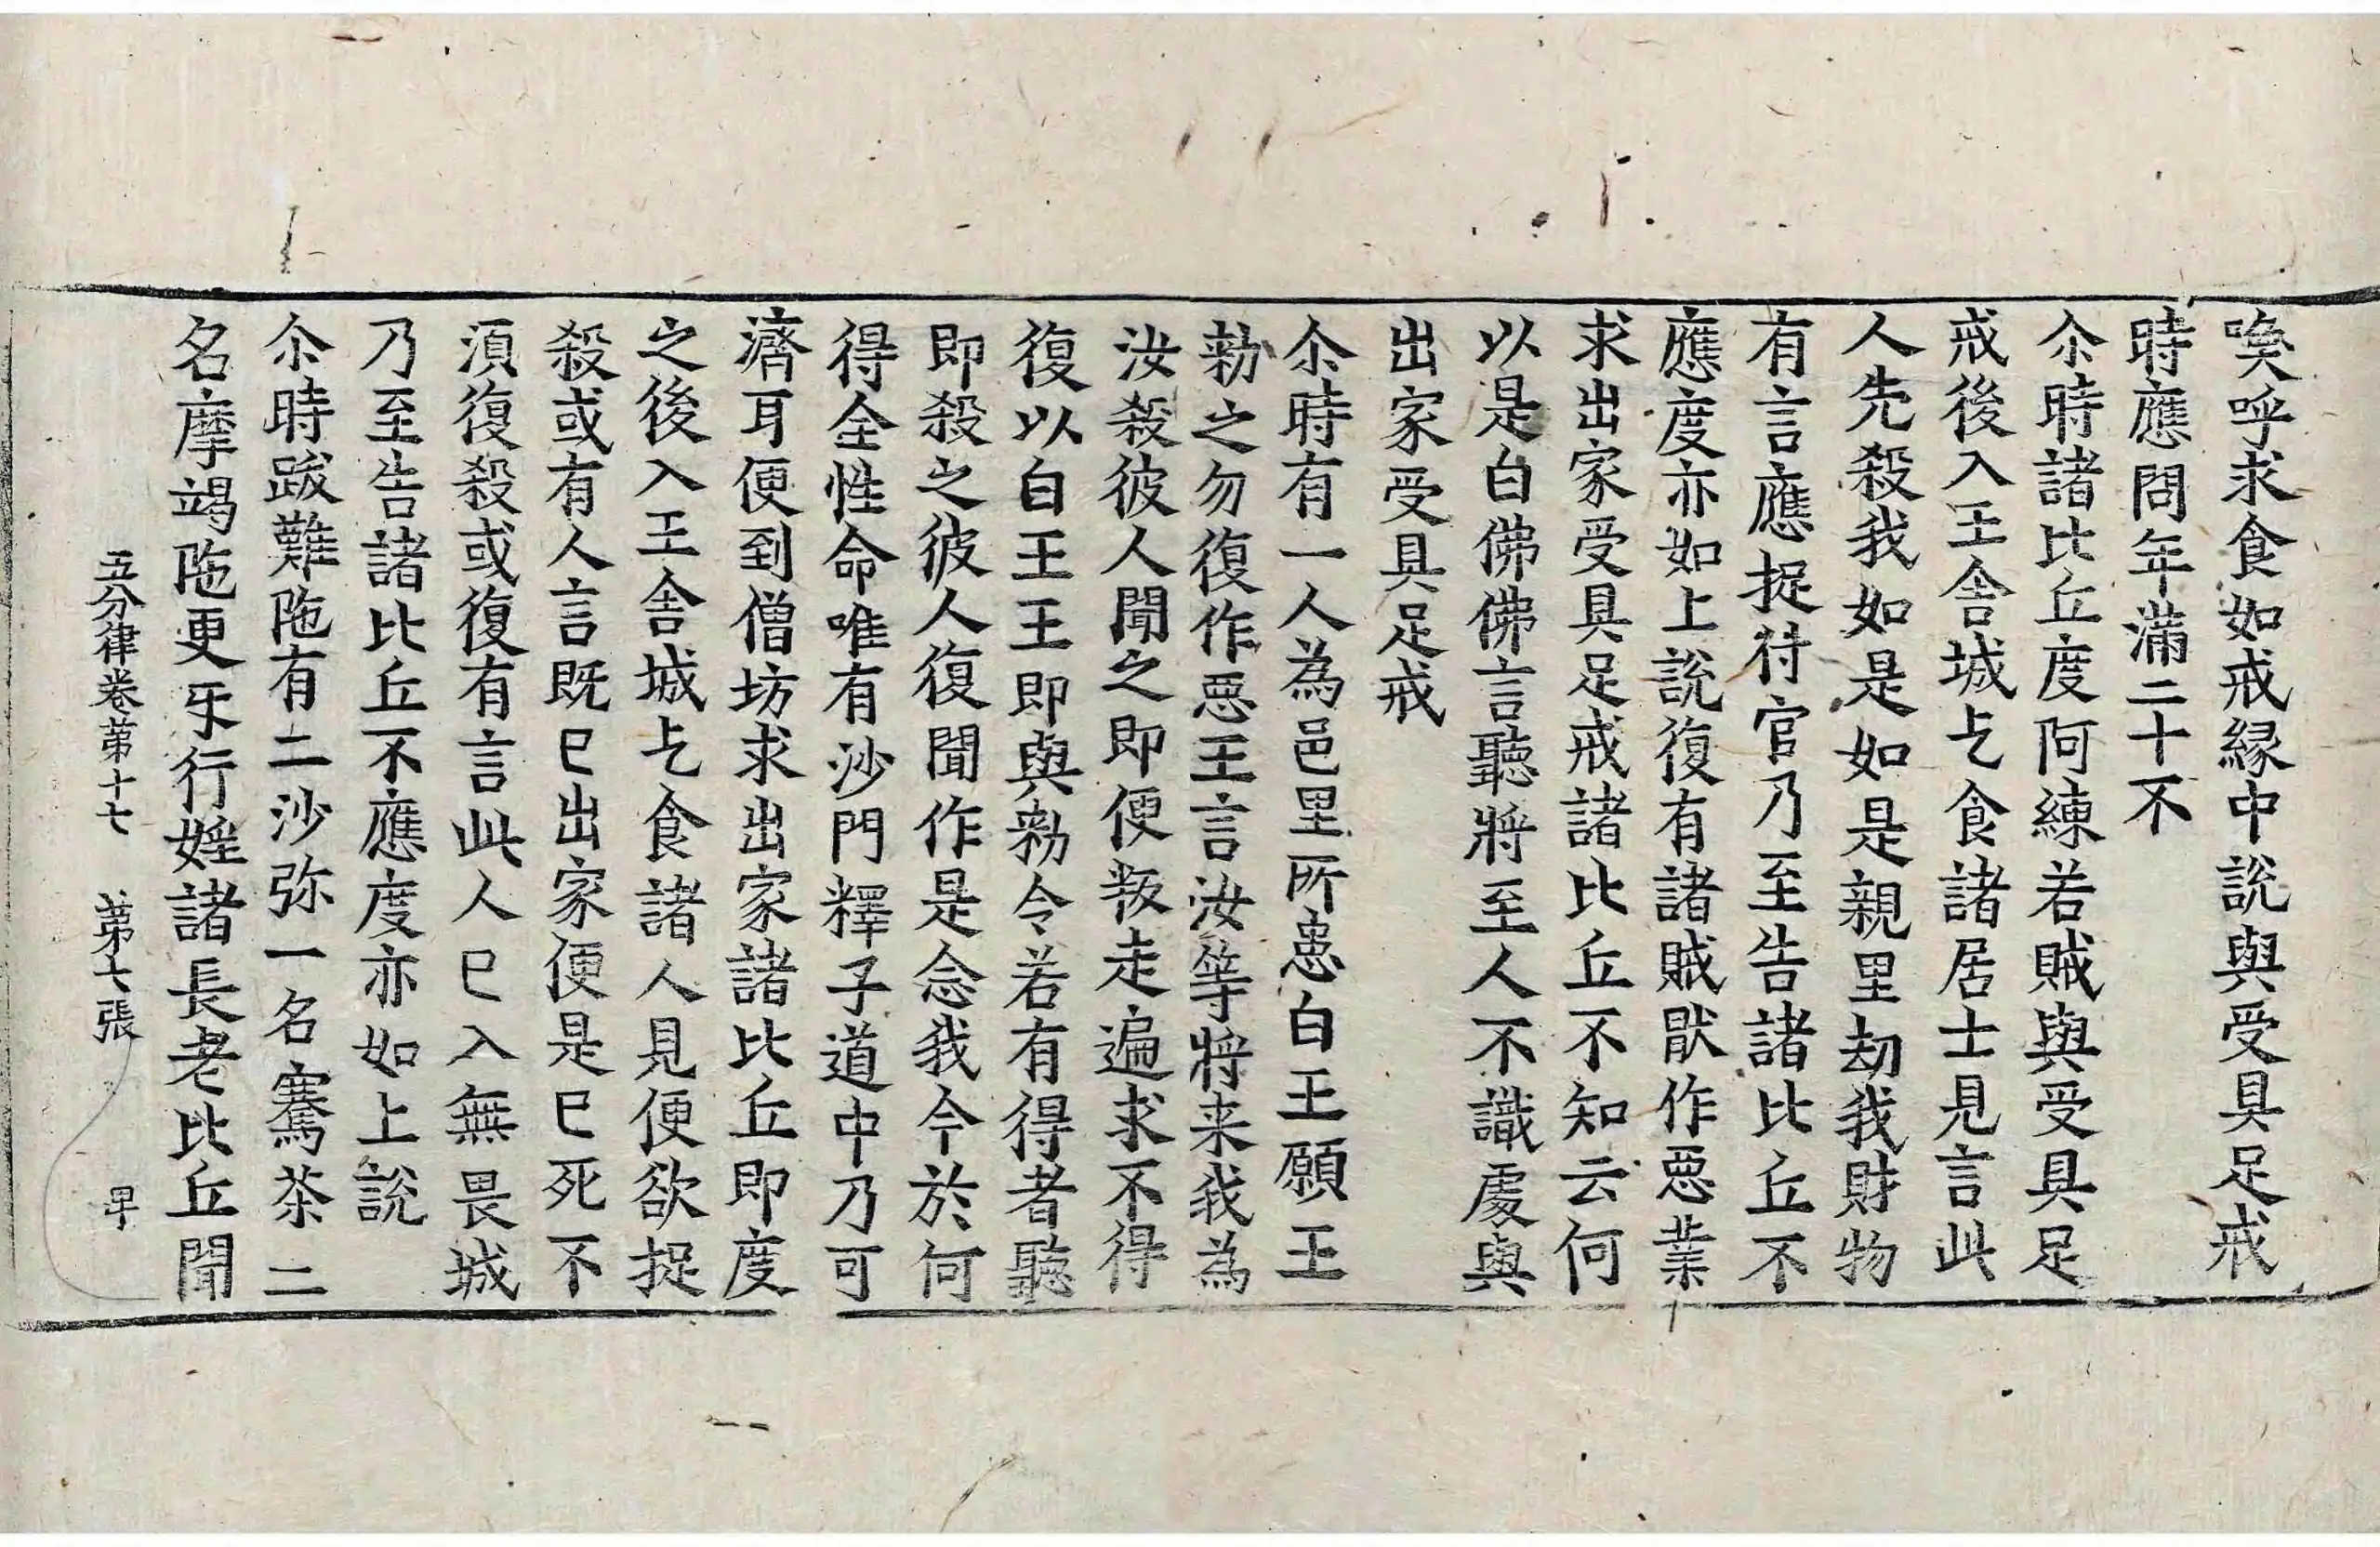 喚呼求食如戒縁中說與受具足戒
時應問年滿二十不
尒時諸比丘度阿練若賊與受具足
戒後入王舍城乞食諸居士見言此
人先殺我如是如是親里劫我財物
有言應捉付官乃至告諸比丘不
應度亦如上說復有諸賊猒作惡業
求出家受具足戒諸比丘不知云何
以是白佛佛言聽將至人不識處與
出家受具足戒
尒時有一人為邑里所患白王願王
勑之勿復作惡王言汝等將来我為
汝殺彼人聞之即便叛走遍求不得
復以白王王即與勑令若有得者聽
即殺之彼人復聞作是念我今於何
得全性命唯有沙門釋子道中乃可
濟耳便到僧坊求出家諸比丘即度
之後入王舍城乞食諸人見便欲捉
殺或有人言既已出家便是已死不
湏復殺或復有言此人已入無畏城
乃至告諸比丘不應度亦如上說
尒時跋難陁有二沙弥一名騫茶二
名摩竭陁更㸦行婬諸長老比丘聞
五分律卷苐十七　苐七張　早